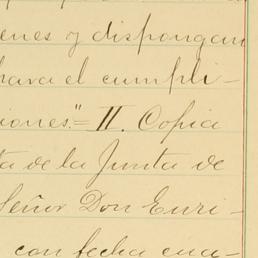 enes y dispongan
para el cumpli-
iones."= II. Copia
ta de la Junta de
Señor Don Enri-
con fecha cua-